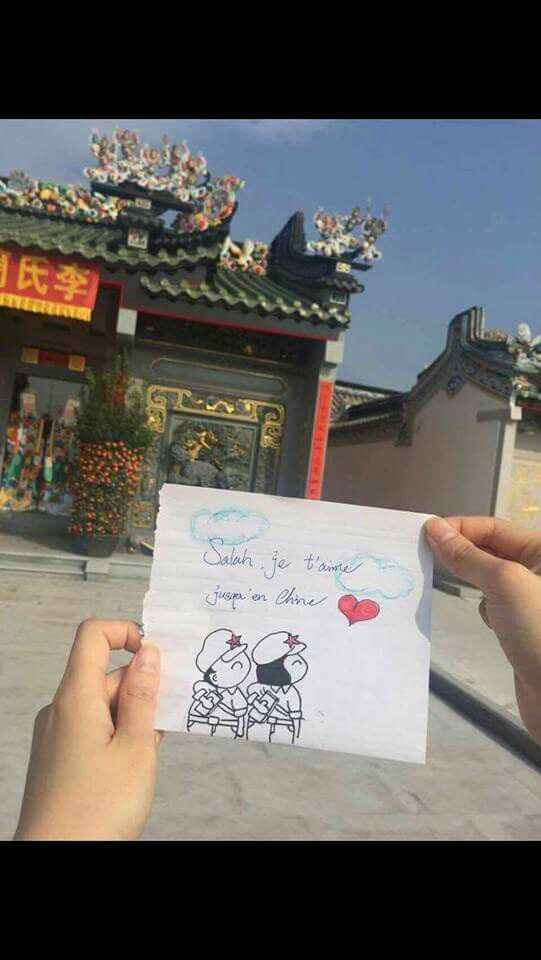 李氏
Salah, je t'aime
jusqa'en Chine